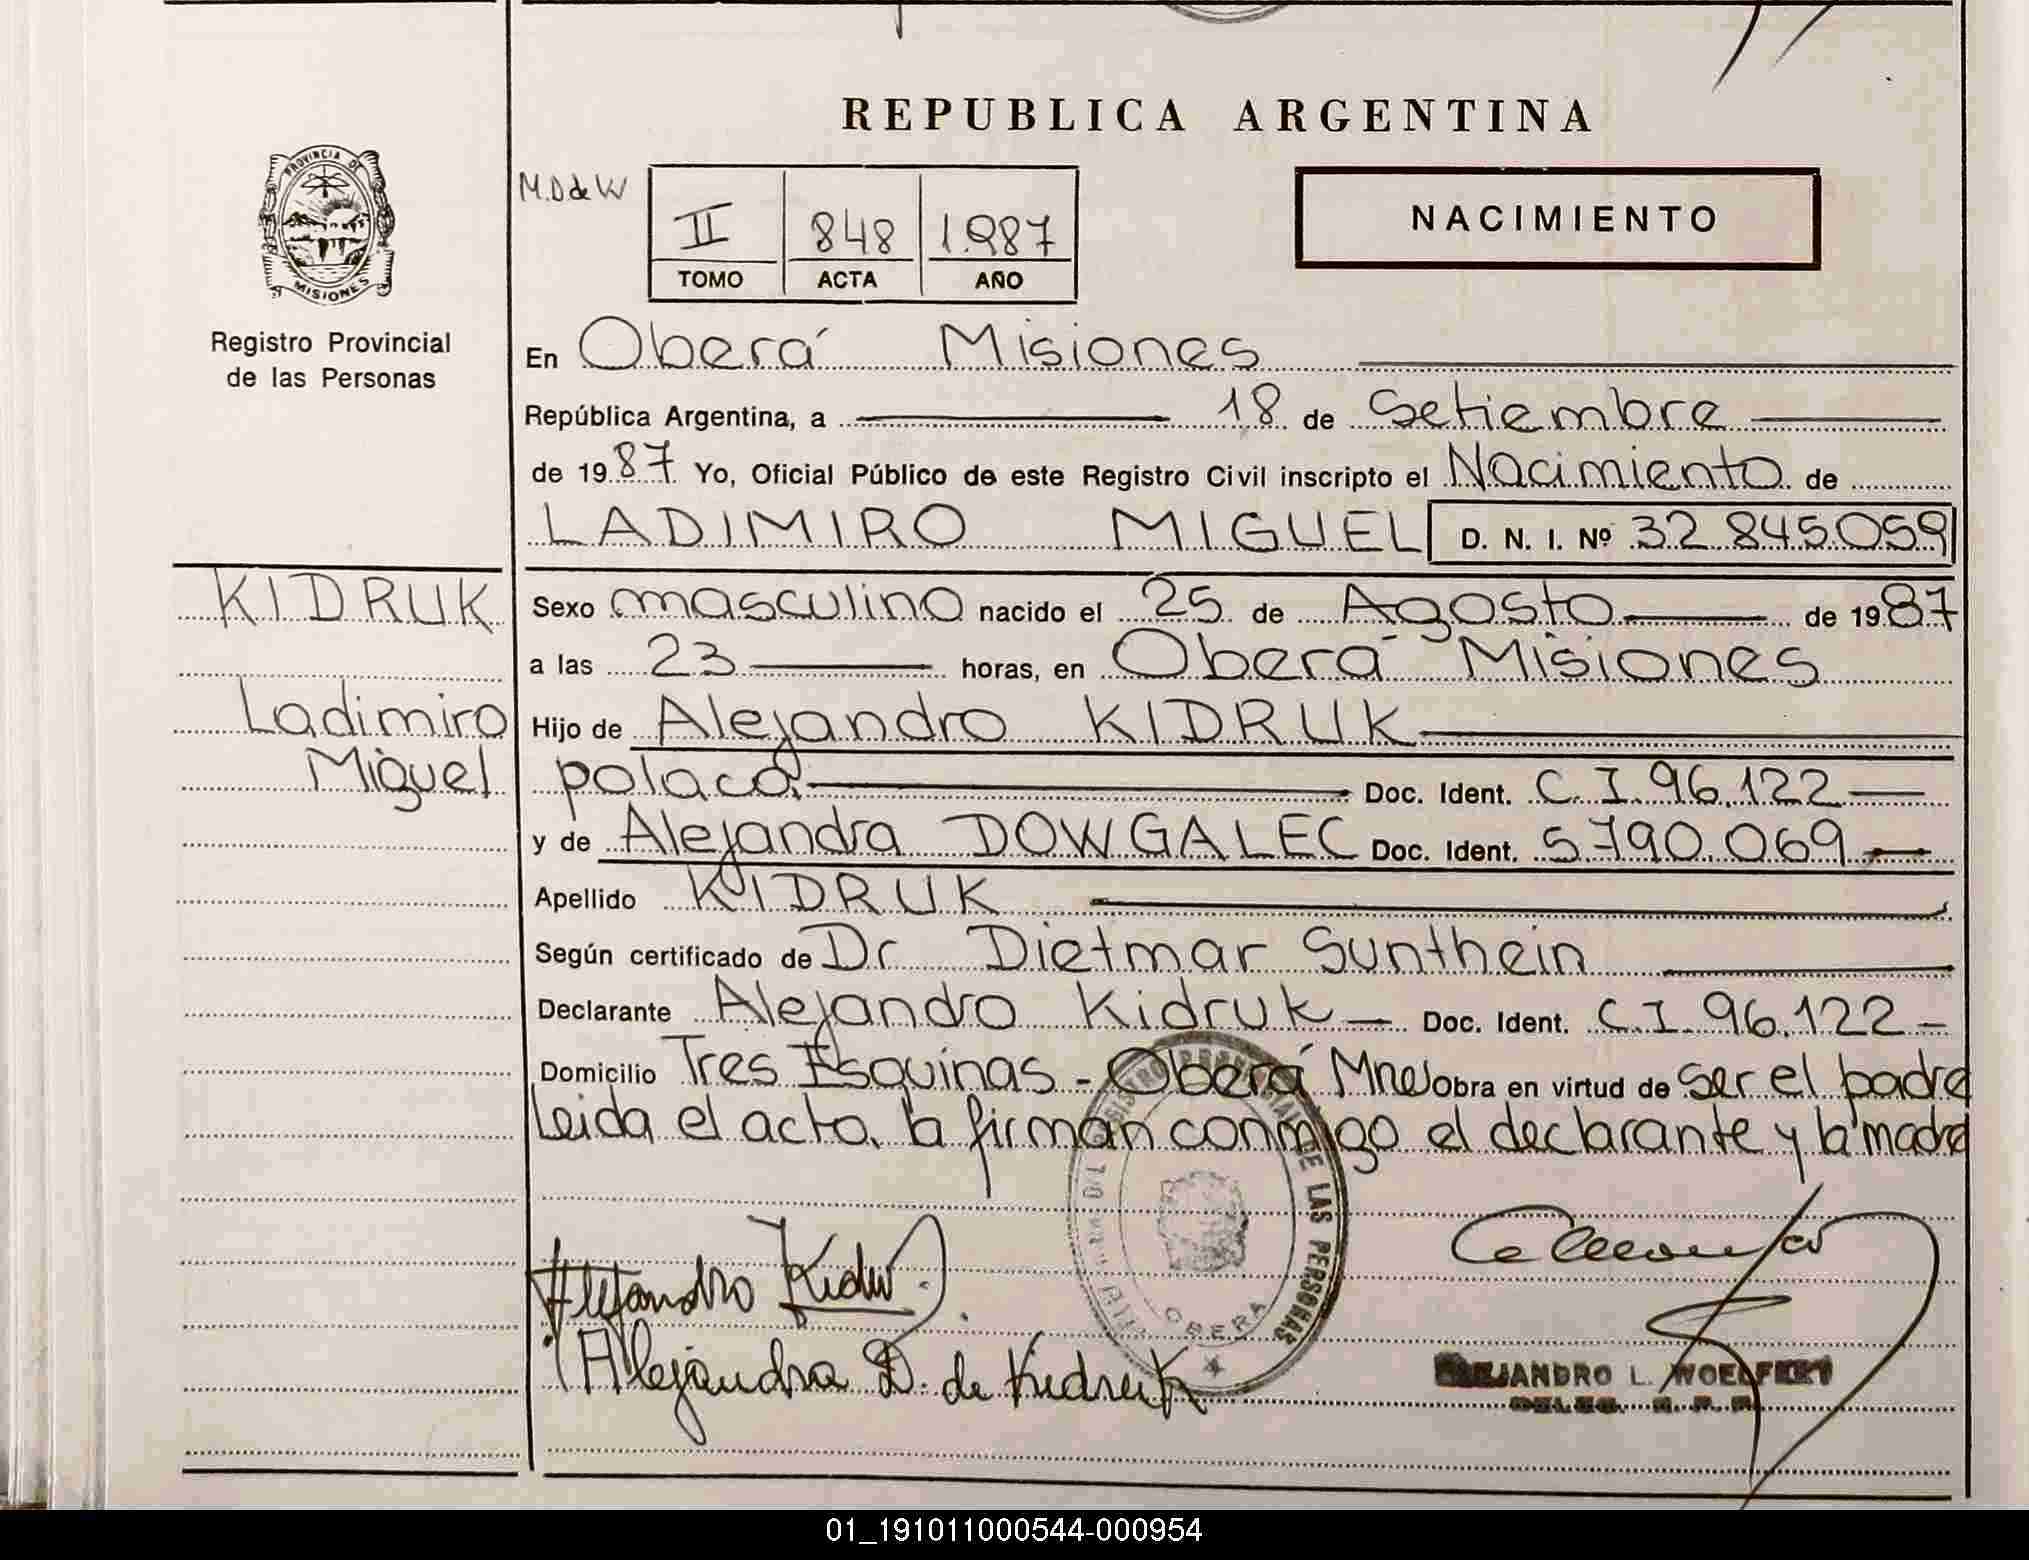 REPUBLICA ARGENTINA
PROVINCIA DE
MISIONES
Registro Provincial
de las Personas
M.D de W
II 848 1.987
TOMO ACTA AÑO
NACIMIENTO
En Oberá Misiones
República Argentina, a 18 de Setiembre
de 1987 Yo, Oficial Público de este Registro Civil inscripto el Nacimiento de
LADIMIRO MIGUEL D. N. I. Nº 32 845.059
KIDRUK
Ladimiro
Miguel
Sexo masculino nacido el 25 de Agosto de 1987
a las 23 horas, en Oberá Misiones
Hijo de Alejandro KIDRUK
polaco. Doc. Ident. C. I. 96.122
y de Alejandra DOWGALEC Doc. Ident. 5.790.069
Apellido KIDRUK
Según certificado de Dr. Dietmar Sunthein
Declarante Alejandro Kidruk Doc. Ident. C.I. 96.122
Domicilio Tres Esquinas - Oberá Mnes Obra en virtud de ser el padre
Leida el acta, la firman conmigo el declarante y la madre
DE LAS PERSONAS
OBERA
Alejandro
Alejandra D. de Kidruk
ALEJANDRO L. WOELFERT
DELEG. R. P. P.
01_191011000544-000954